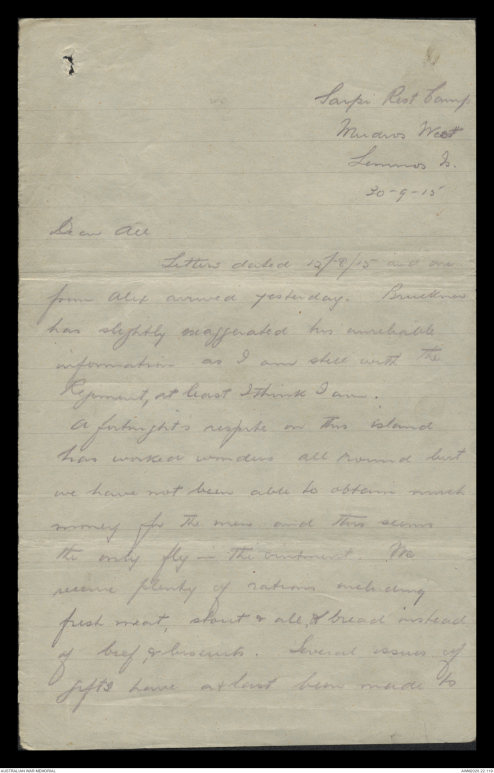 Sarpi Rest Camp
Mudros West
Lemnos Is.
30-9-15
Dear All
Letters dated 15/8/15 and one
from Alex arrived yesterday.
has slightly exaggerated his unreliable
information as I am still with the
Regiment, at least I think I am.
A fortnight's respite on this island
has worked wonders all round but
we have not been able to obtain much
money for the men and this seems
the only fly in the ointment. We
receive plenty of rations including
fresh meat, stout & ale, & bread instead
of beef & biscuits. Several issues of
gifts have at last been made to
AUSTRALIAN WAR MEMORIAL